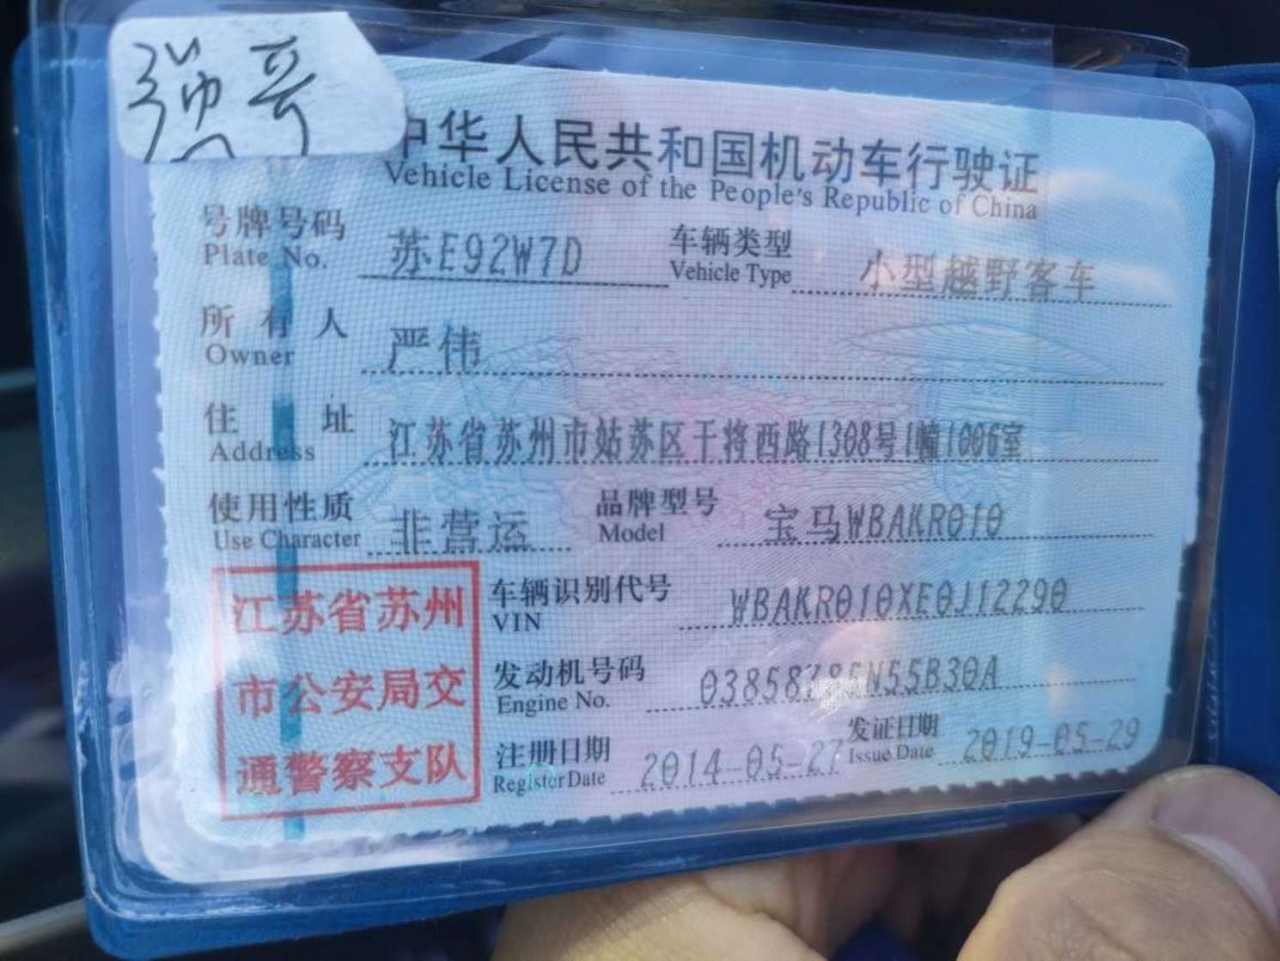 强哥
中华人民共和国机动车行驶证
Vehicle License of the People's Republic of China
号牌号码 苏E92W7D 车辆类型 小型越野客车
Plate No. Vehicle Type
所有人 严伟
Owner
住址 江苏省苏州市姑苏区干将西路1308号1幢1006室
Address
使用性质 非营运 品牌型号 宝马WBAKR010
Use Character Model
江苏省苏州
市公安局交
通警察支队
车辆识别代号 WBAKR010XE0J12290
VIN
发动机号码
Engine No.
注册日期 2014-05-27 发证日期 2019-05-29
Register Date Issue Date